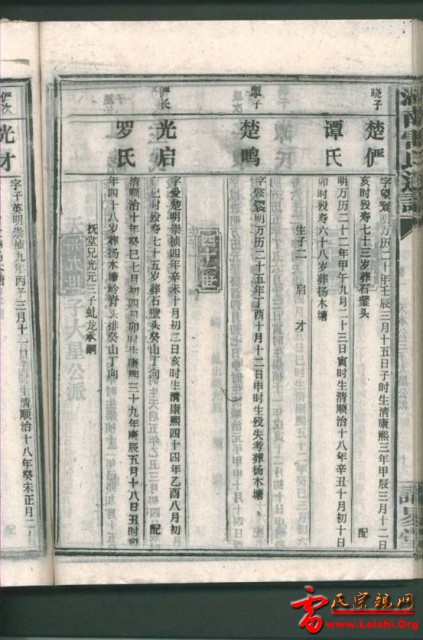 晓子
楚俨
明万历二十年壬辰三月十五日子时生清康熙三年甲辰三月十二日
配
亥时殁寿七十三岁葬石璧头
谭氏
明万历二十二年甲午九月二十三日寅时生清顺治十八年辛丑十月初十日
卯时殁寿六十八岁葬杨木塘
生子二 启 才
楚鸣
明万历二十五年丁酉十月十二日申时生殁失考葬杨木塘
俨长
光启
明崇祯四年辛未十月初二日亥时生清康熙四十四年乙酉八月初
七日时殁寿七十五岁葬石璧头癸山丁向
配
罗氏
清顺治十年癸巳七月初四日卯时生康熙三十九年庚辰五月十八日丑时殁
年四十八岁葬杨木塘岭背头排癸山丁向
抚堂兄光元三子虬龙承嗣
俨次
光才
字子英明崇祯九年丙子三月十二日 生清顺治十八年癸未正月二
雷氏宗亲网
http://www.Leishi.Org